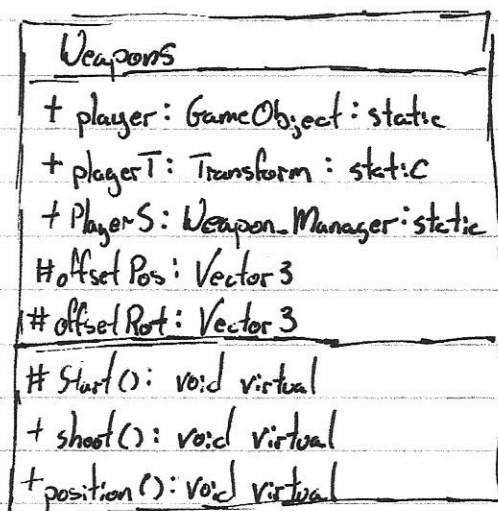 Weapons
+ player: GameObject: static
+ playerT: Transform: static
+ PlayerS: Weapon_Manager: static
# offsetPos: Vector3
# offsetRot: Vector3
# Start(): void virtual
+ shoot(): void virtual
+ position(): void virtual